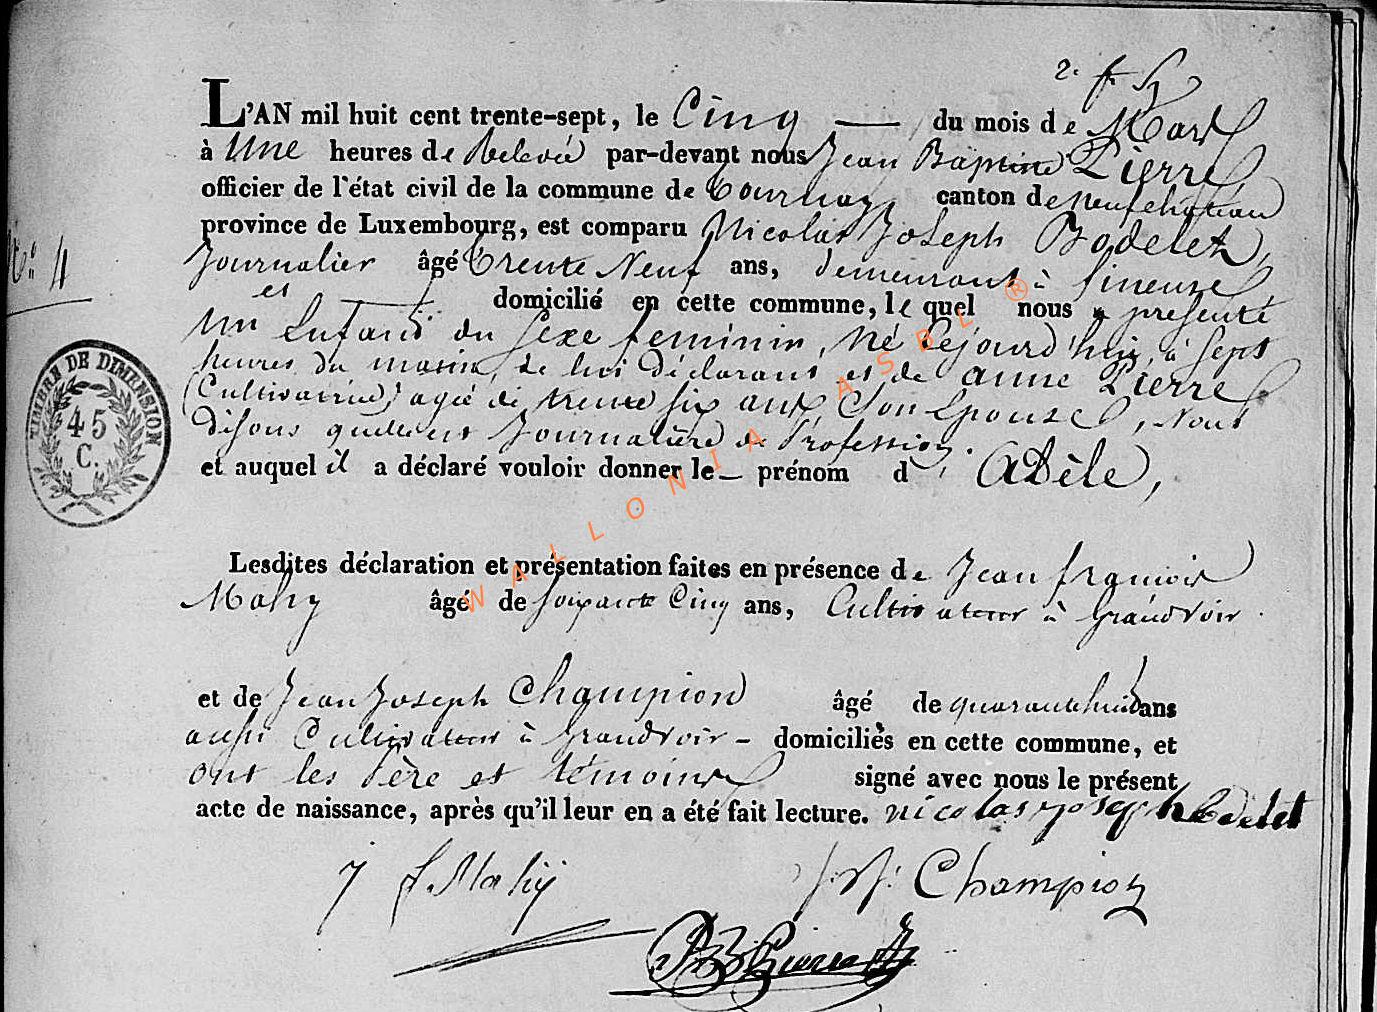 2. f. H
L'AN mil huit cent trente-sept, le Cinq — du mois de Mars
à Une heures de Relevée par-devant nous Jean Baptiste Pierre
officier de l'état civil de la commune de Tournay, canton de neufchateau
province de Luxembourg, est comparu Nicolas Joseph Bodelet,
N° 4
Journalier âgé Trente Neuf ans, demeurant à Sineuse
et domicilié en cette commune, le quel nous a presenté
un Enfant du Sexe feminin, Né Cejourd'huy, à Sept
heures du matin, de lui déclarant et de Anne Pierre
(Cultivatrice) agée de trente six ans Son Epouse, Nous
Disons quelle est Journalière de Profession.
et auquel il a déclaré vouloir donner le — prénom d' Adèle,
TIMBRE DE DIMENSION
45
C.
Lesdites déclaration et présentation faites en présence de Jean françois
Mahy âgé de soixante Cinq ans, Cultivateur à Grandvoir.
et de Jean Joseph Champion âgé de quarante huit ans
aussi Cultivateur à Grandvoir — domiciliés en cette commune, et
ont les Père et témoins signé avec nous le présent
acte de naissance, après qu'il leur en a été fait lecture. nicolas joseph bodelet
J f. Mahy
J. J. Champion
JB Pierre
WALLONIA ASBL ®